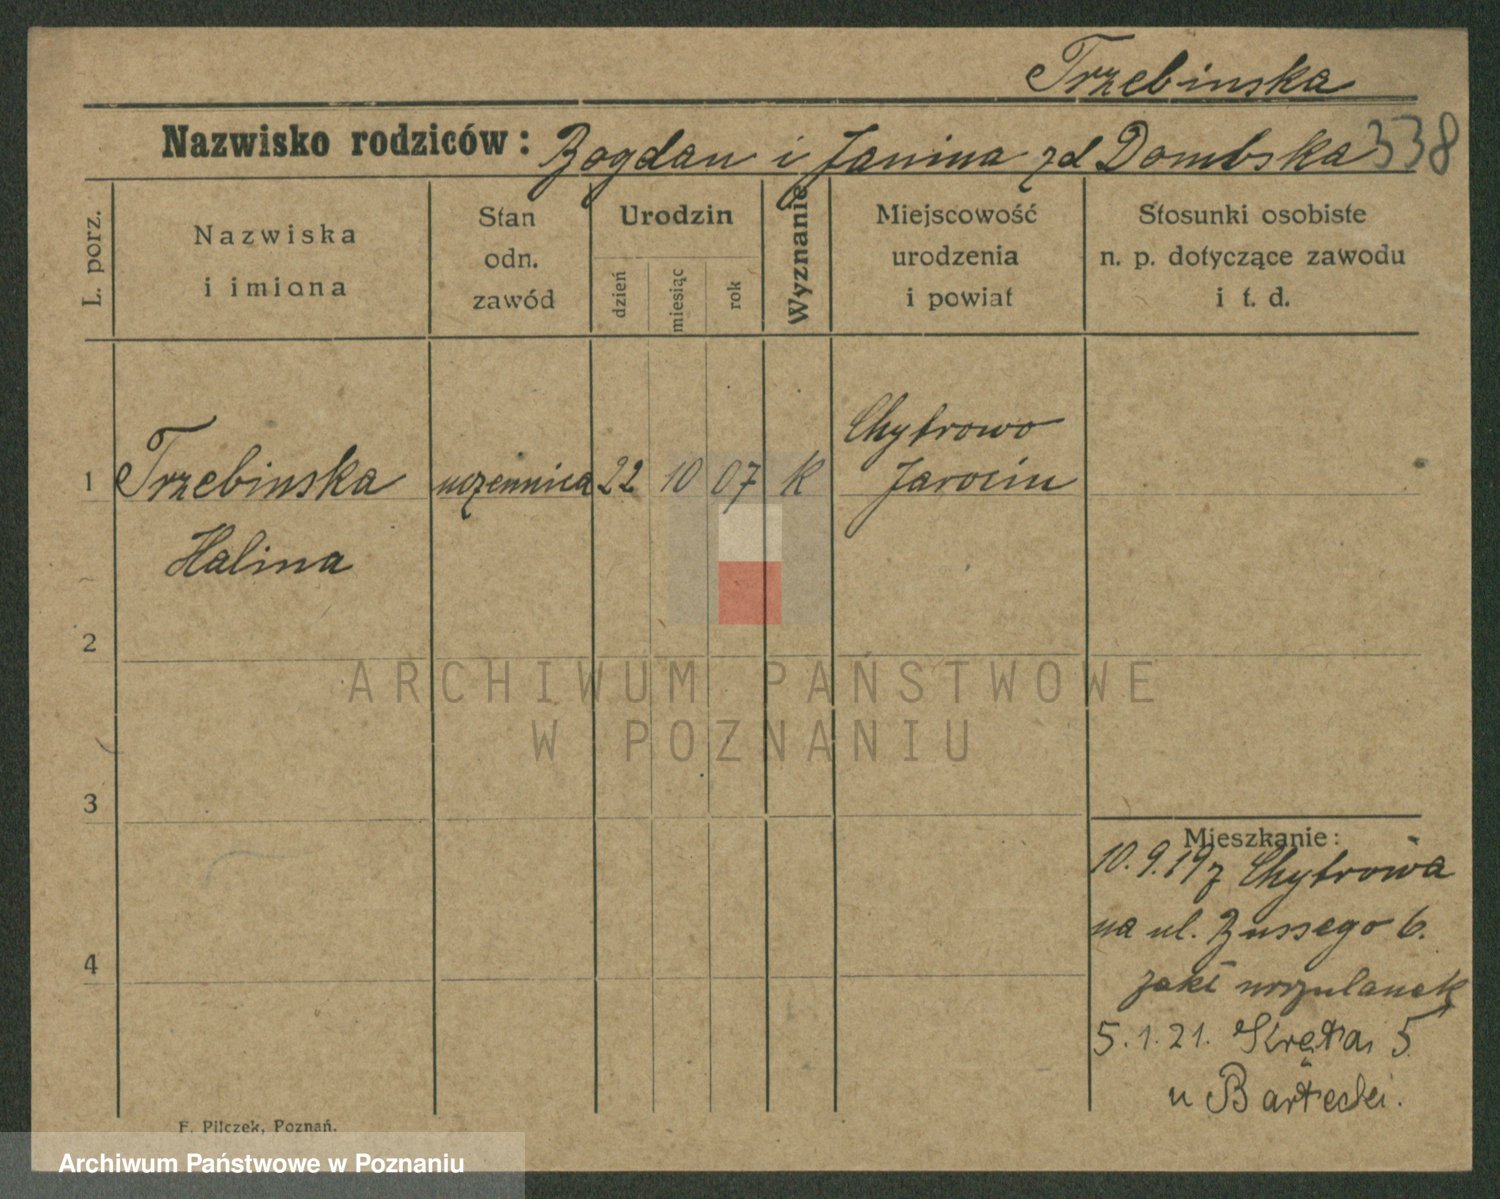 Trzebinska
Nazwisko rodziców: Bogdan i Janina zd Dombska 338
L. porz.
Nazwiska
i imiona
Stan
odn.
zawód
Urodzin
dzień
miesiąc
rok
Wyznanie
Miejscowość
urodzenia
i powiat
Stosunki osobiste
n. p. dotyczące zawodu
i t. d.
Chytrowo
1 Trzebinska uczennica 22 10 07 K Jarocin
Halina
2
ARCHIWUM PAŃSTWOWE
W POZNANIU
3
Mieszkanie:
10.9.19 z Chytrowa
na ul. Bussego 6.
4
zakł urszulanek
5.1.21. Kręta 5
u
F. Pilczek, Poznań.
Archiwum Państwowe w Poznaniu